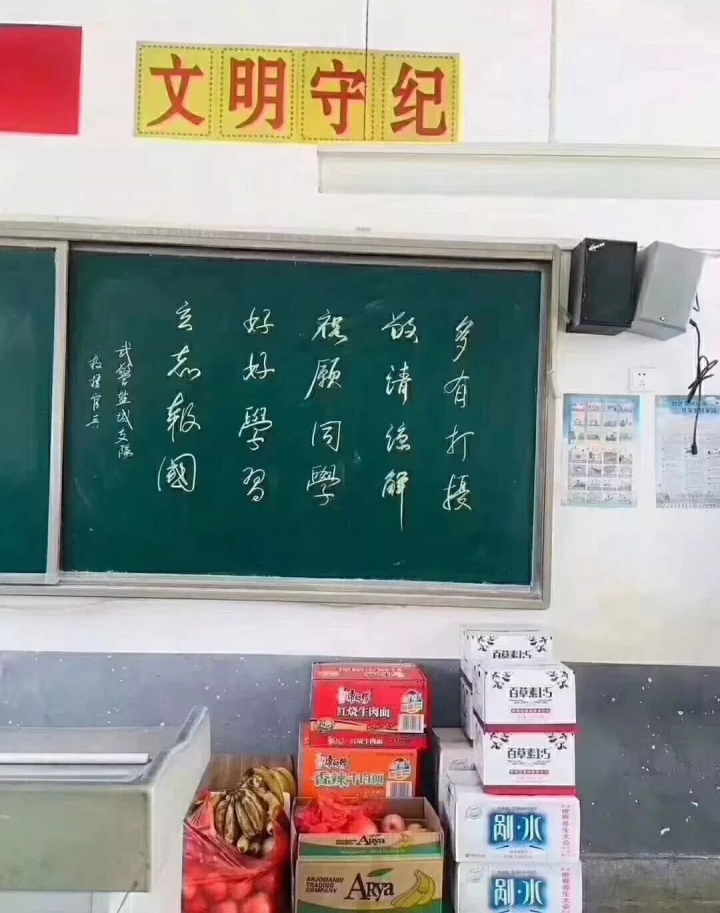 文明守纪
多有打擾
敬请谅解
祝願同學
好好學習
立志報國
武警盐城支隊
救援官兵
康师傅
红烧牛肉面
红烧牛肉面
康师傅
香辣牛肉面
Arya
ARJOMANDI
TRADING
COMPANY
Arya
百草素巧
百草素巧
百草素巧
剐·水
剐·水